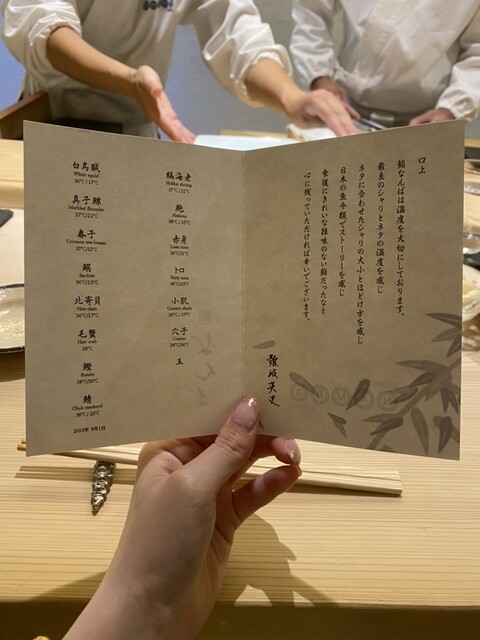 白烏賊
White squid
36℃/17℃
真子鰈
Marbled flounder
37℃/22℃
春子
Crimson sea-bream
37℃/22℃
鰯
Sardine
36℃/13℃
北寄貝
Hon-chan
36℃/17℃
毛蟹
Hair crab
38℃
鰹
Bonito
38℃/20℃
鯖
Chub mackerel
38℃/23℃
2023年 9月1日
縞海老
Hokkai shrimp
37℃/21℃
鮑
Abalone
38℃/23℃
赤身
Lean tuna
36℃/21℃
トロ
Fatty tuna
38℃/23℃
小肌
Gizzard shad
36℃/19℃
穴子
Conger
38℃/36℃
玉
口上
鮨なんばは温度を大切にしております。
最良のシャリとネタの温度を感じ
ネタに合わせたシャリの大小とほどけ方を感じ
日本の魚介類でストーリーを感じ
食後にきれいな雑味のない鮨だったなと
心に残っていただければ幸いでございます。
難波英史